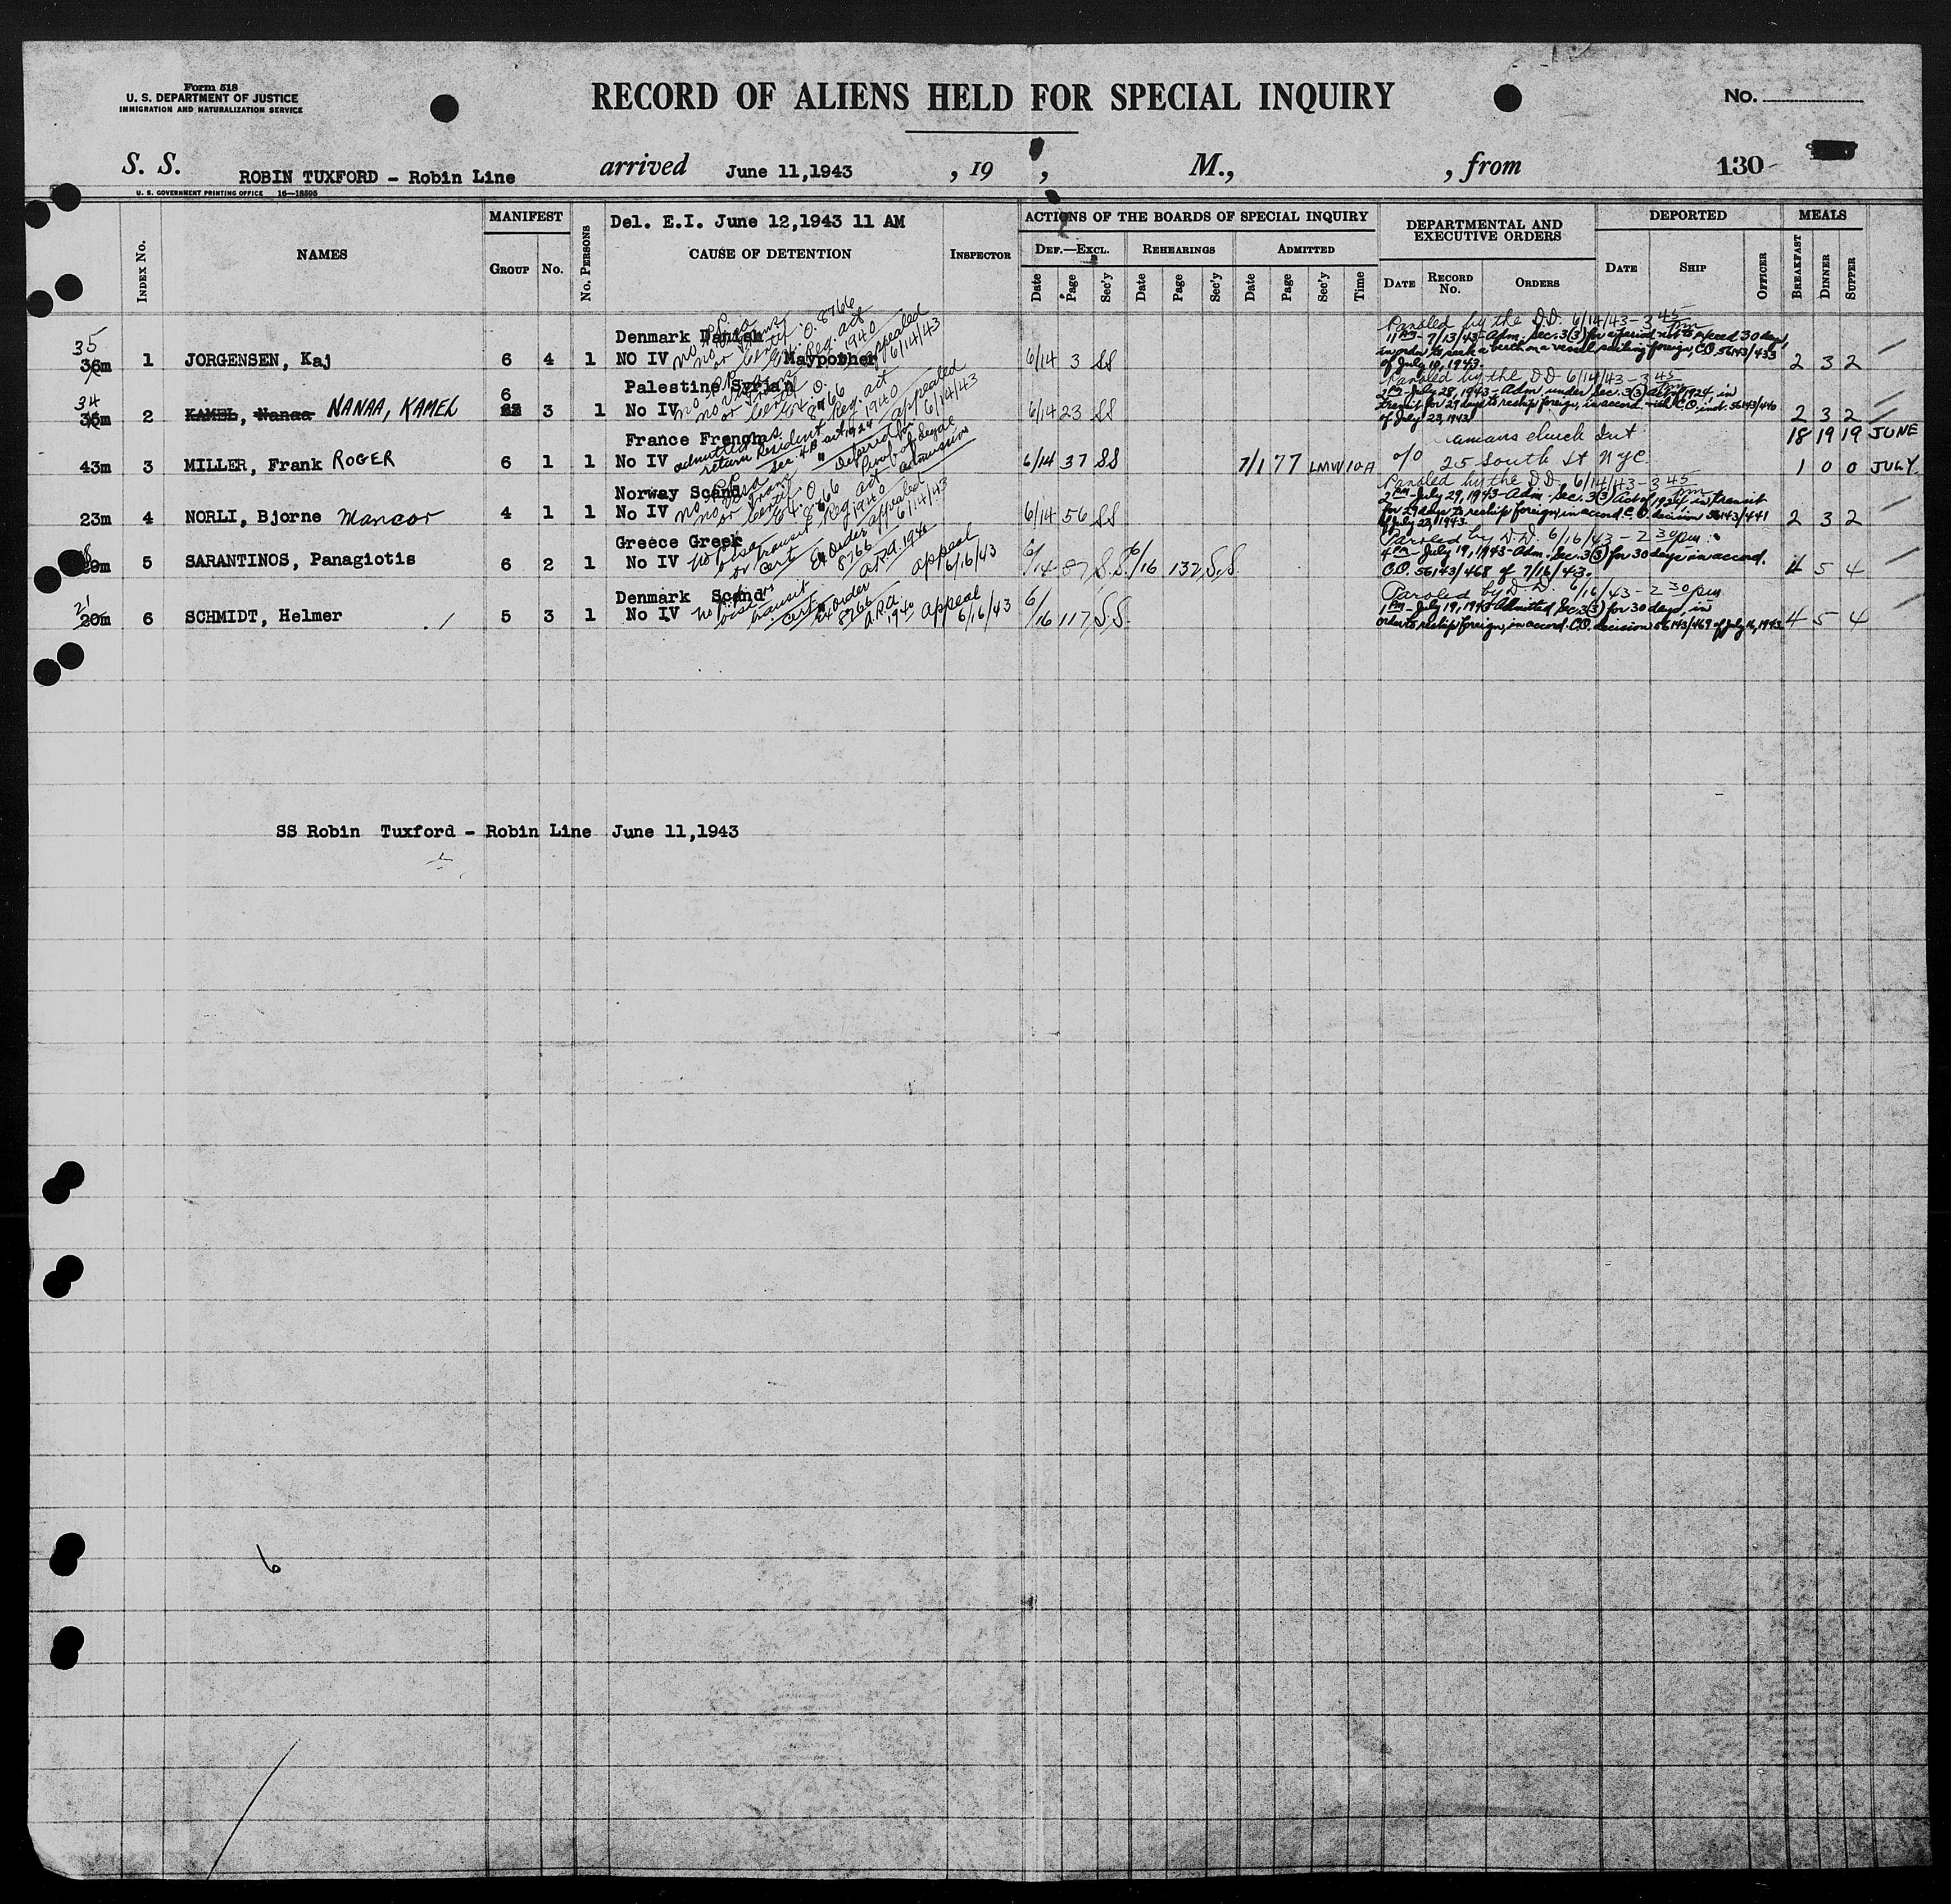 Form 518
U. S. DEPARTMENT OF JUSTICE
IMMIGRATION AND NATURALIZATION SERVICE
RECORD OF ALIENS HELD FOR SPECIAL INQUIRY
No.
S. S. ROBIN TUXFORD - Robin Line arrived June 11,1943 , 19 , M., , from 130
U. S. GOVERNMENT PRINTING OFFICE 16-18595
INDEX No.
NAMES
MANIFEST
GROUP No.
No. PERSONS
Del. E.I. June 12,1943 11 AM
CAUSE OF DETENTION
INSPECTOR
ACTIONS OF THE BOARDS OF SPECIAL INQUIRY
DEF.—EXCL. REHEARINGS ADMITTED
Date Page Sec'y Date Page Sec'y Date Page Sec'y Time
DEPARTMENTAL AND EXECUTIVE ORDERS
DATE RECORD No. ORDERS
DEPORTED
DATE SHIP OFFICER
MEALS
BREAKFAST DINNER SUPPER
35
36m 1 JORGENSEN, Kaj 6 4 1
Denmark Danish
NO IV Maypother
Ex. O. 8766
Reg. act 1940
appealed 6/14/43
6/14 3 SS
Paroled by the D.D. 6/14/43 - 3 45 pm
11 AM - 7/13/43 - Adm. Sec. 3(3) for a period not to exceed 30 days,
in order to seek a berth on a vessel sailing foreign, C.O. 56143/433
of July 10, 1943.
2 3 2
34
2 KAMEL, Nanaa NANAA, KAMEL 6 3 1
Palestine Syrian
No IV
no visa or trans. certif.
Ex. O. 8766
Reg. act 1940
appealed 6/14/43
6/14 23 SS
Paroled by the DD 6/14/43 - 3 45 pm
2 PM July 28, 1943 - Adm. under Sec. 3(3) act of 1924, in
transit for 29 days to reship foreign, in accord. with C.O. inst. 56143/440
of July 23, 1943
2 3 2
18 19 19 JUNE
43m 3 MILLER, Frank ROGER 6 1 1
France French
No IV
admitted as return resident
Sec 4B act 1924
Deferred for Proof of legal admission
6/14 37 SS
7/1 77 LMW 10A
c/o Seamans church Inst
25 South St NYC
1 0 0 JULY
23m 4 NORLI, Bjorne Mancor 4 1 1
Norway Scand
No IV
no visa or trans certif.
Ex. O. 8766
Reg. act 1940
appealed 6/14/43
6/14 56 SS
Paroled by the DD. 6/14/43 - 3 45 pm
2 PM - July 29, 1943 - Adm. Sec. 3(3) Act of 1924, in transit
for 29 days to reship foreign, in accord. C.O. decision 56143/441
of July 23, 1943
2 3 2
5 SARANTINOS, Panagiotis 6 2 1
Greece Greek
No IV
no visa or transit cert
Ex Order 8766
A.R.A. 1940
appeal 6/16/43
6/14 87 S.S. 6/16 132 S.S.
Paroled by D.D. 6/16/43 - 2 30 pm
4 PM - July 19, 1943 - Adm. Sec. 3(3) for 30 days in accord.
C.O. 56143/468 of 7/16/43.
4 5 4
21
20m 6 SCHMIDT, Helmer 5 3 1
Denmark Scand
No IV
transit cert
Ex Order 8766
A.R.A. 1940
appeal 6/16/43
6/16 117 S.S.
Paroled by D.D. 6/16/43 - 2 30 pm
1 PM - July 19, 1943 - Admitted Sec. 3(3) for 30 days, in
order to reship foreign, in accord. C.O. decision 56143/469 of July 16, 1943
4 5 4
SS Robin Tuxford - Robin Line June 11,1943
6